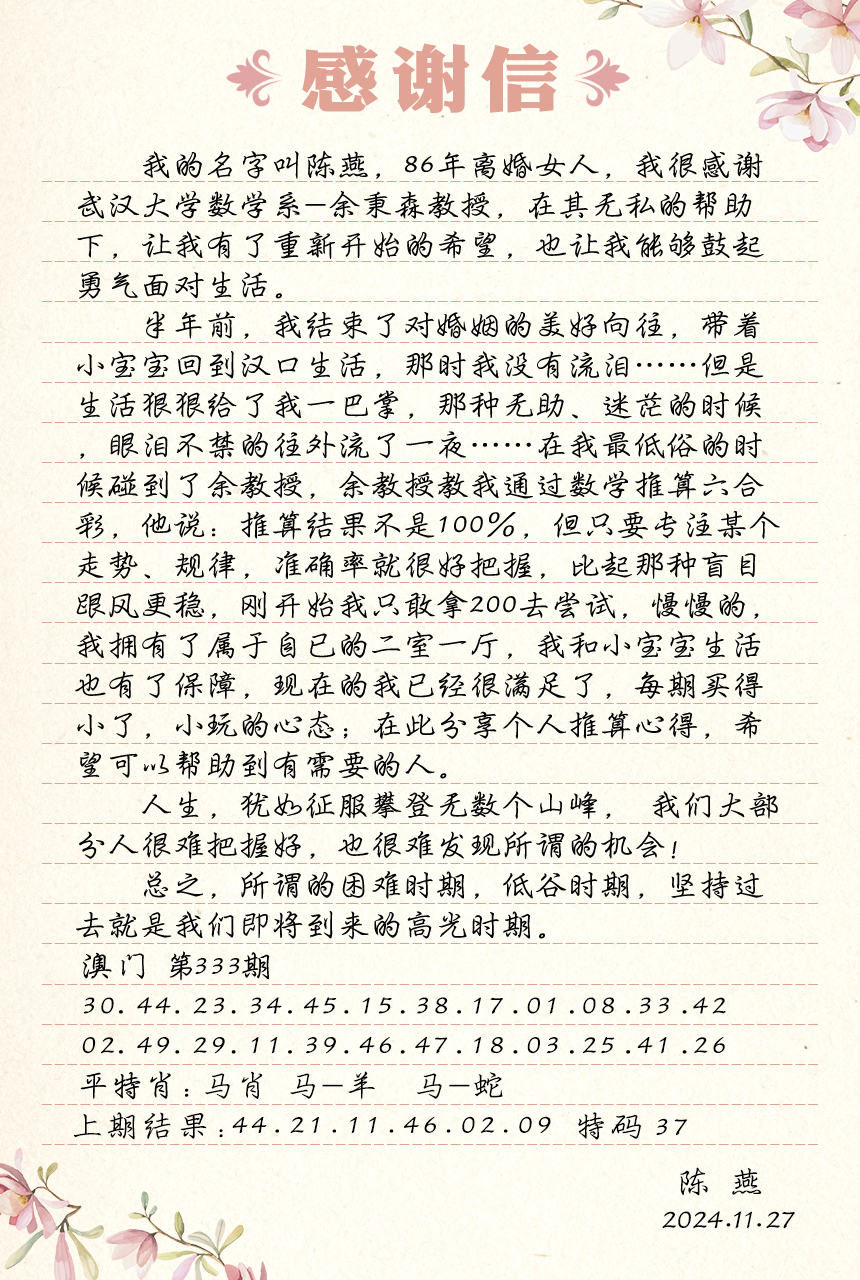 感谢信
我的名字叫陈燕，86年离婚女人，我很感谢
武汉大学数学系—余秉森教授，在其无私的帮助
下，让我有了重新开始的希望，也让我能够鼓起
勇气面对生活。
半年前，我结束了对婚姻的美好向往，带着
小宝宝回到汉口生活，那时我没有流泪……但是
生活狠狠给了我一巴掌，那种无助、迷茫的时候
，眼泪不禁的往外流了一夜……在我最低俗的时
候碰到了余教授，余教授教我通过数学推算六合
彩，他说：推算结果不是100%，但只要专注某个
走势、规律，准确率就很好把握，比起那种盲目
跟风更稳，刚开始我只敢拿200去尝试，慢慢的，
我拥有了属于自已的二室一厅，我和小宝宝生活
也有了保障，现在的我已经很满足了，每期买得
小了，小玩的心态；在此分享个人推算心得，希
望可以帮助到有需要的人。
人生，犹如征服攀登无数个山峰， 我们大部
分人很难把握好，也很难发现所谓的机会！
总之，所谓的困难时期，低谷时期，坚持过
去就是我们即将到来的高光时期。
澳门 第333期
30.44.23.34.45.15.38.17.01.08.33.42
02.49.29.11.39.46.47.18.03.25.41.26
平特肖：马肖 马—羊 马—蛇
上期结果：44.21.11.46.02.09 特码 37
陈 燕
2024.11.27